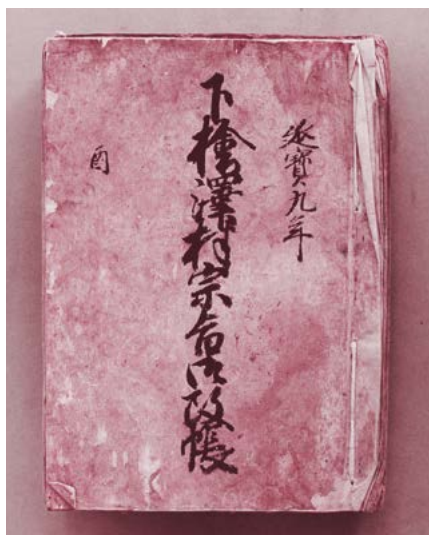 延寶九年
下檜澤村宗旨御改帳
酉